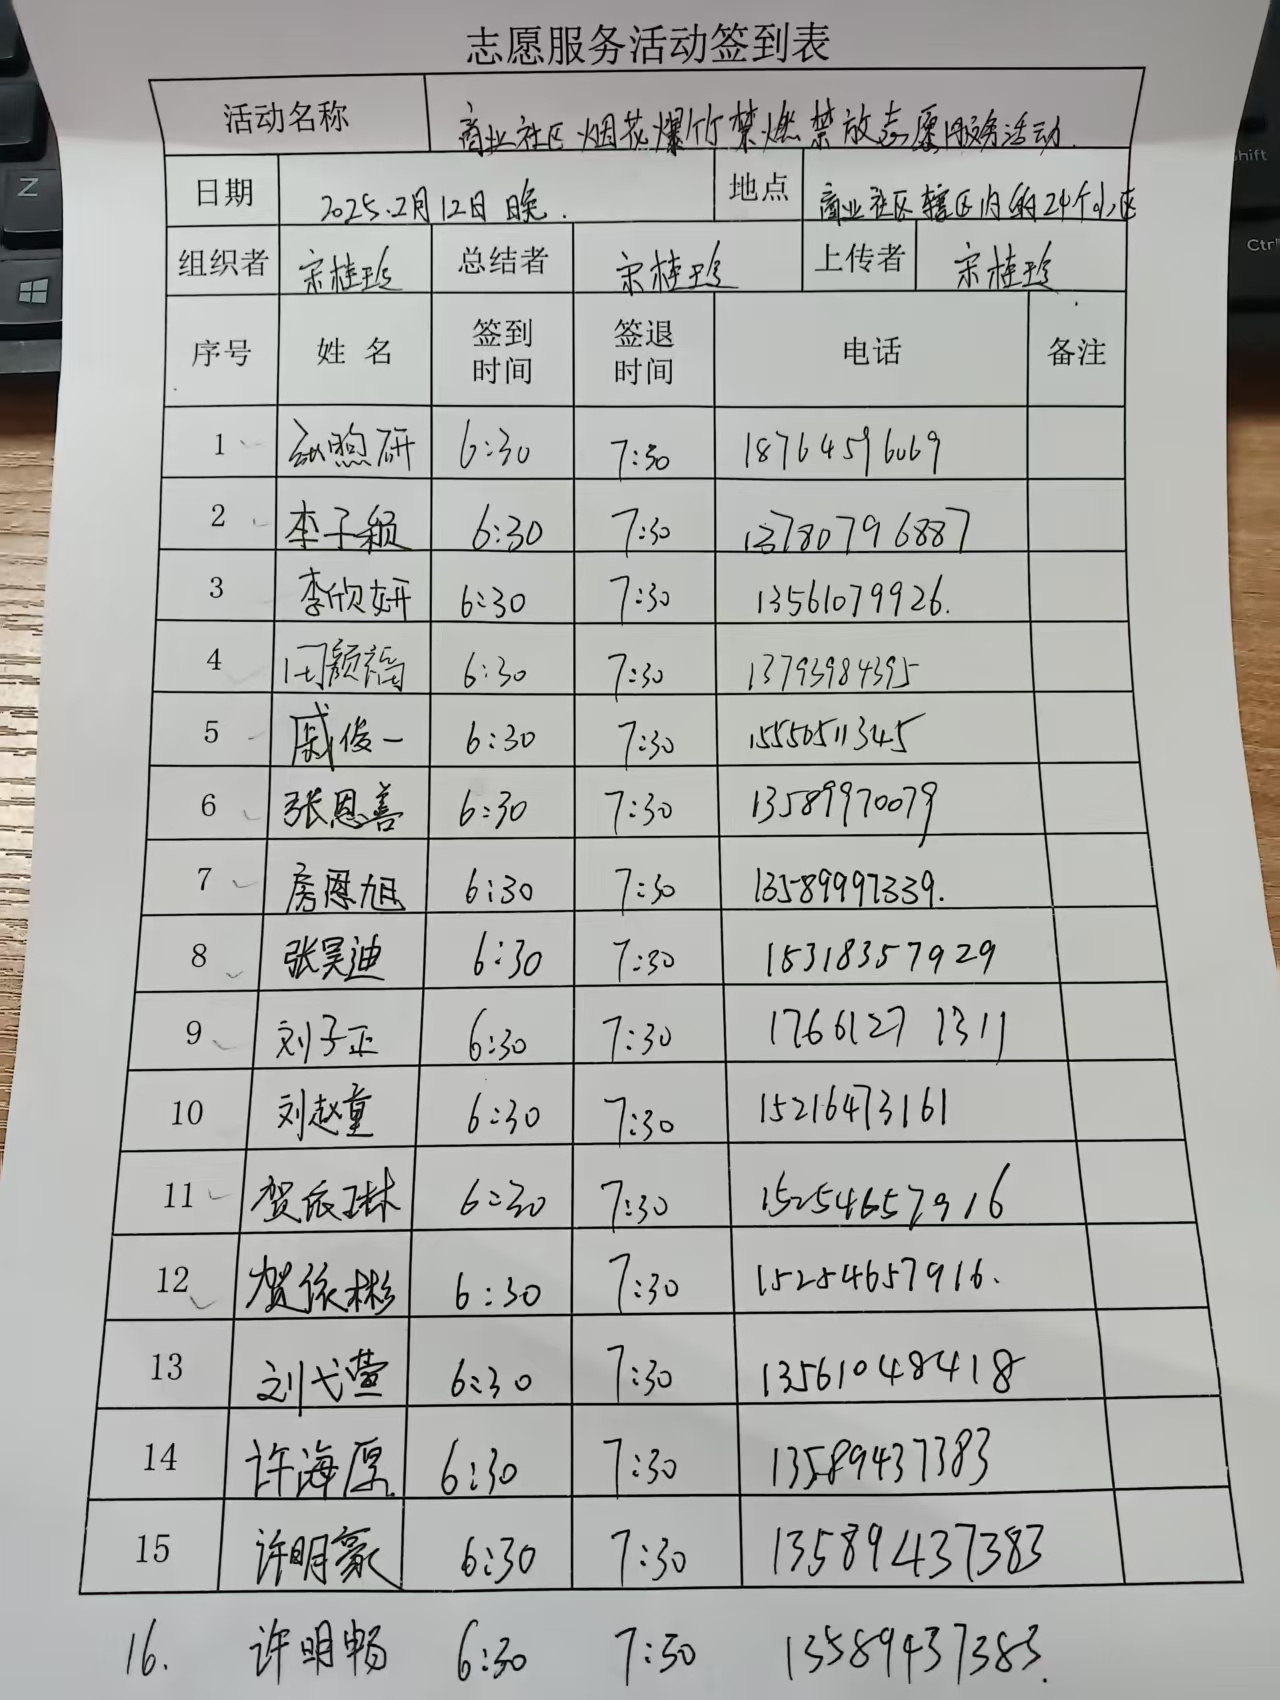 志愿服务活动签到表
活动名称 商业社区烟花爆竹禁燃禁放志愿服务活动.
日期 2025.2月12日晚. 地点 商业社区辖区内的24个小区
组织者 宋桂珍 总结者 宋桂珍 上传者 宋桂珍
序号 姓名 签到时间 签退时间 电话 备注
1 煦研 6:30 7:30 18764596069
2 李子颖 6:30 7:30 13780796887
3 李欣妍 6:30 7:30 13561079926.
4 闫颢福 6:30 7:30 13793984395
5 戚俊一 6:30 7:30 15550511345
6 张恩善 6:30 7:30 13589970079
7 房恩旭 6:30 7:30 13589997339.
8 张昊迪 6:30 7:30 18318357929
9 刘子正 6:30 7:30 17661271311
10 刘赵童 6:30 7:30 15216473161
11 贺依琳 6:30 7:30 15254657916
12 贺依彬 6:30 7:30 15254657916.
13 刘弋萱 6:30 7:30 13561048418
14 许海原 6:30 7:30 13589437383
15 许明豪 6:30 7:30 13589437383
16. 许明畅 6:30 7:30 13589437383.
Z
Shift
Ctrl